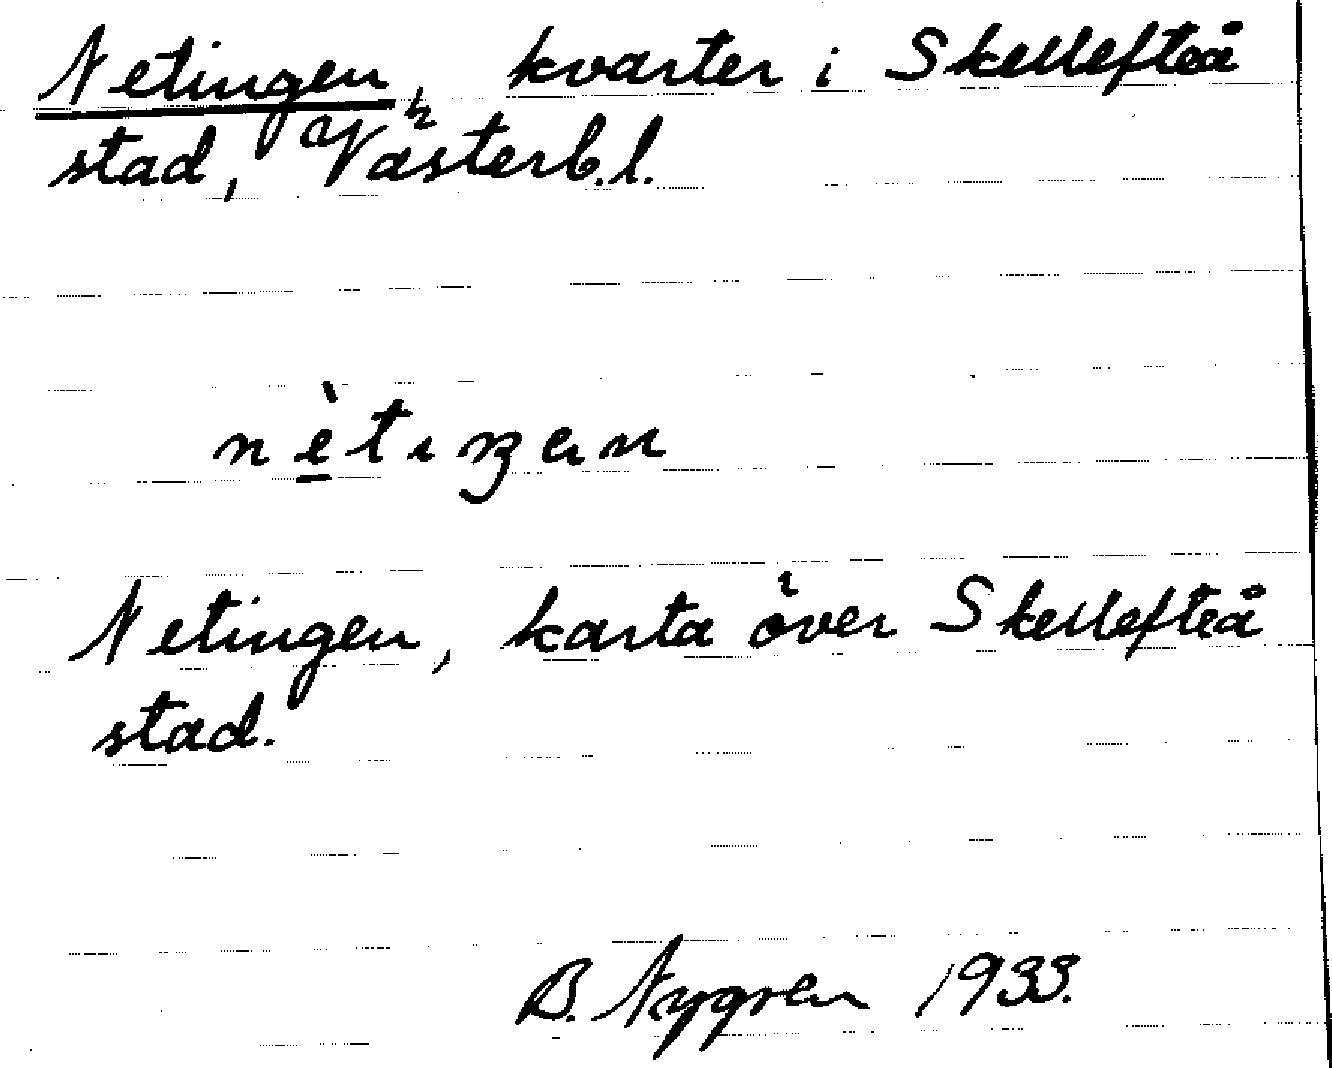 Netingen, kvarter i Skellefteå
stad, Västerb.l.
nètıŋen
Netingen, karta över Skellefteå
stad.
B. Nygren 1933.